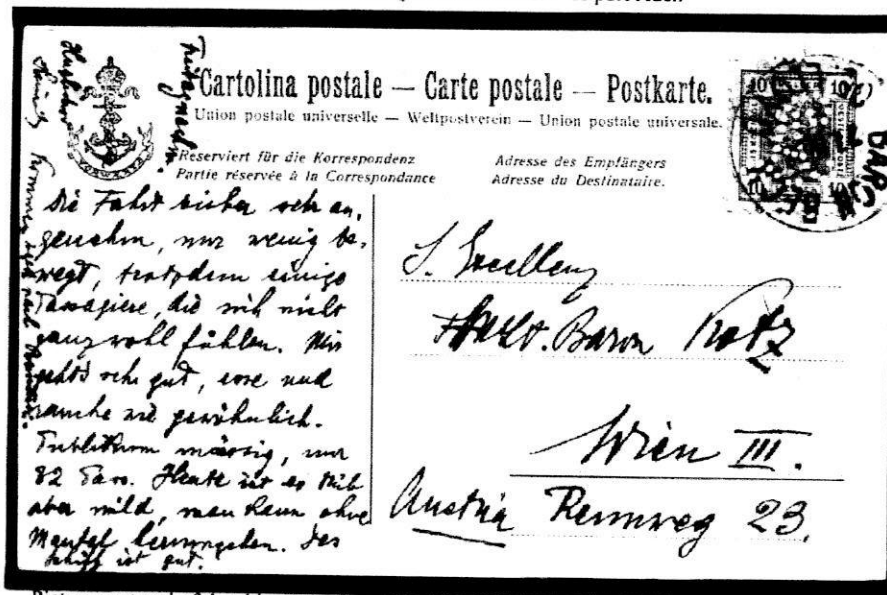 Cartolina postale — Carte postale — Postkarte.
Union postale universelle — Weltpostverein — Union postale universale.
Reserviert für die Korrespondenz
Partie réservée à la Correspondance
Adresse des Empfängers
Adresse du Destinataire.
VORWÄRTS
10 10
10 10
Die Fahrt bisher sehr an-
genehm, nur wenig be-
wegt, trotzdem einige
Passagiere, die sich nicht
ganz wohl fühlen. Mir
geht's sehr gut, esse und
rauche wie gewöhnlich.
Publikum mässig, nur
82 Pass. Heute ist es trüb
aber mild, man kann ohne
Mantel herumgehen. Das
Schiff ist gut.
S. Excellenz
Baron
Wien III.
Austria Rennweg 23.